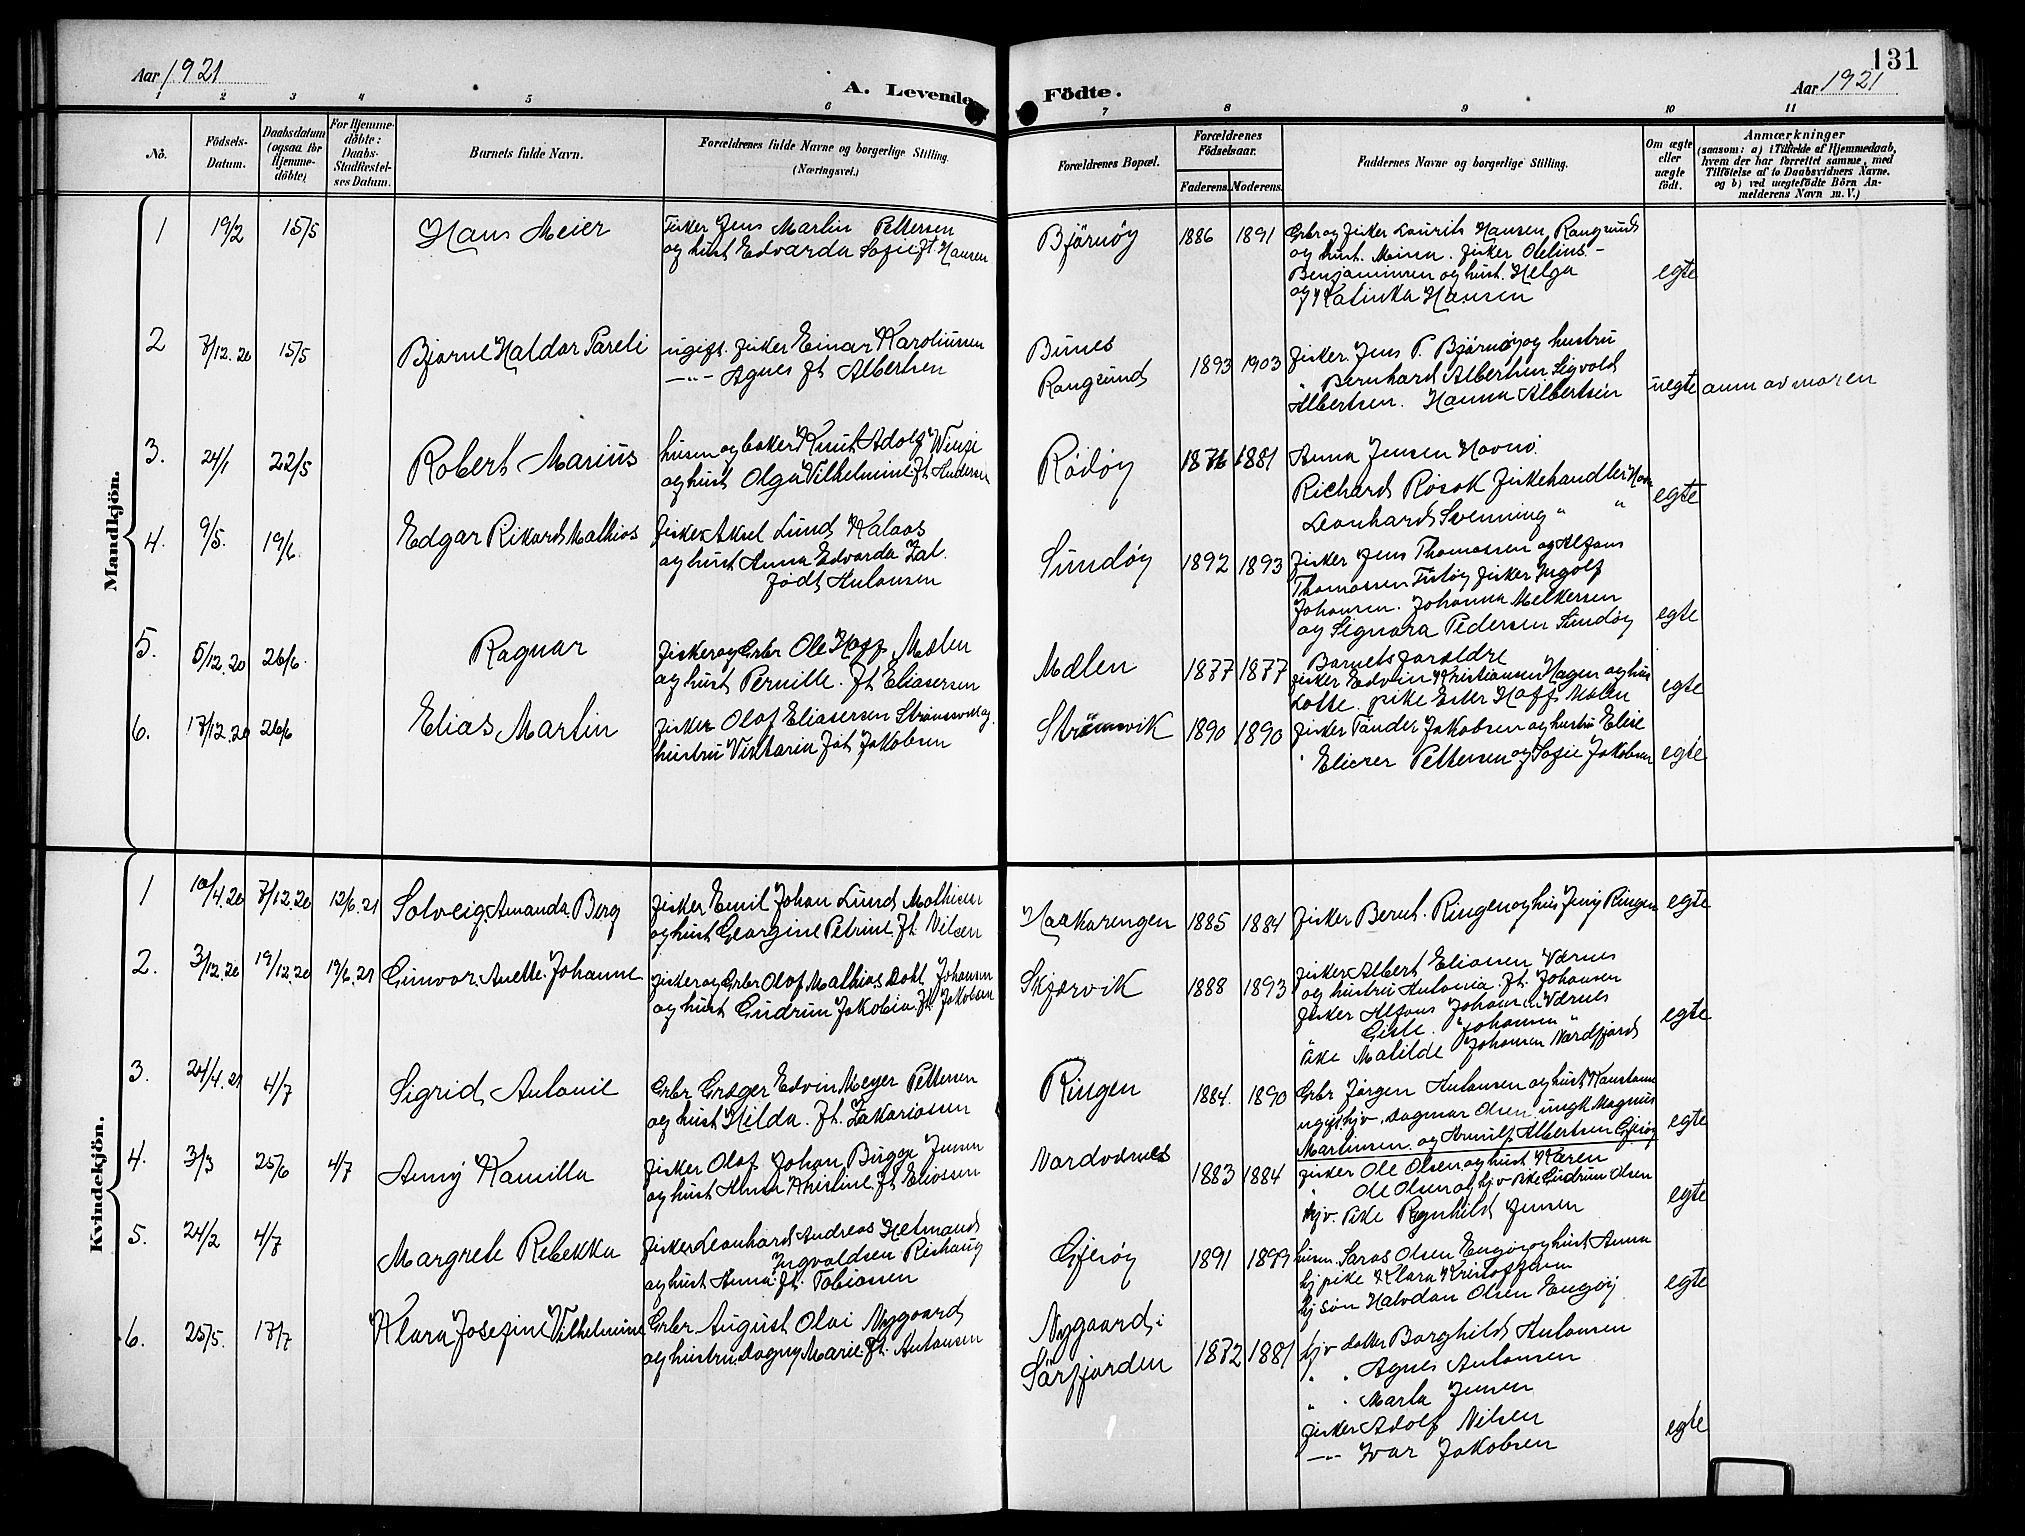 131
Aar 1921
A. Levende Födte.
Aar 1921
1 2 3 4 5 6 7 8 9 10 11
No.
Födsels-Datum.
Daabsdatum (ogsaa for Hjemme-döbte).
For Hjemme-döbte: Daabs-Stadfæstel-ses Datum.
Barnets fulde Navn.
Forældrenes fulde Navne og borgerlige Stilling.
(Næringsvei.)
Forældrenes Bopæl.
Forældrenes Födselsaar.
Faderens. Moderens.
Faddernes Navne og borgerlige Stilling.
Om ægte eller uægte födt.
Anmærkninger
(saasom: a) i Tilfælde af Hjemmedaab,
hvem der har forrettet samme, med
Tilföielse af to Daabsvidners Navne.
og b) ved uegtefödte Börn An-
melderens Navn m. V.)
Mandkjön.
1 19/2 15/5 Hans Meier
Fisker Jens Martin Pettersen
og hust Edvarda Sofie ft. Hansen
Bjørnøy 1886 1891
Grbr og fisker Laurits Hansen, Rangsund
og hust. Mina. fisker Otelius
Benjaminsen og hust. Helga
og Katinka Hansen
egte
2 7/12.20 15/5 Bjarne Haldor Pareli
ugift. fisker Einar Karoliussen
—"— Agnes ft Albertsen
Bunes
Rangsund
1893 1903
fisker. Jens P. Bjørnøy og hustru
" Bernhard Albertsen Sigvald
Albertsen. Hanna Albertsen
uegte anm av moren
3. 24/1 22/5 Robert Marius
husm og baker Knut Adolf
og hust Olga Vilhelmine ft Andersen
Rødøy 1876 1881
Anna Jensen Havnø.
Richard Røsok fiskehandler
Leonhard Svenning " "
egte
4. 9/5. 19/6. Edgar Rikard Mathias
fisker Aksel Lund Kalaas
og hust Anna Edvarda
født Antonsen
Sundøy 1892 1893
fisker Jens Thomassen og Alfons
Thomassen fisker Ingolf
Johansen. Johanna Melkersen
og Signora Pedersen Sundøy
egte
5. 5/12.20 26/6. Ragnar
fisker og Grbr Ole Hoff Mælen
og hust Pernille. ft Eliasersen
Mælen 1877 1877
Barnets forældre
fisker Edvin Kristiansen Hagen og hus
Lotte. pike Ester Hoff Mælen
egte
6. 17/12.20 26/6 Elias Martin
fisker Olaf Eliasersen Strømsvik og
hustru Viktoria føt Jakobsen
Strømsvik 1890 1890
fisker Tønder Jakobsen og hustru Elise
" Elieser Pettersen og Sofie Jakobsen
egte
Kvindekjön.
1 10/4.20 7/12.20 12/6.21 Solveig Amanda Berg
fisker Emil Johan Lund Mathisen
og hust Georgine Petrine ft. Nilsen
Haakarengen 1885 1884
fisker Bernt. Ringen og hus Jeny Ringen
egte
2. 3/12.20 19/12.20 19/6.21 Gunvor. Anette. Johanne
fisker og Grbr Olaf Mathias Johansen
og hust Gudrun Jakobia ft Jakobsen
Skjærvik 1888 1893
fisker Albert Eliassen Værnes
og hustru Antonia. ft. Johansen
fisker Alfons Johansen Værnes
Gisle. Johansen "
Pike Matilde Johansen Nordfjord
egte
3. 24/4.21 4/7 Sigrid Antonie
Grbr Græger Edvin Meyer Pettersen
og hust Hilda. ft. Zakariassen
Ringen 1884. 1890
Grbr Jørgen Antonsen og hust Konstanse
ugift hjv. Dagmar Olsen. ungk Magnus
Martinsen og Arnulf Albertsen Gjerøy
egte
4. 3/3 25/6 4/7 Anny Kamilla
fisker Olaf Johan Birger Jensen
og hust Anna Kristine ft Eliassen
Nordværnes 1883 1884
fisker Ole Olsen og hust Karen
" Ole Olsen og hjv pike Gudrun Olsen
hjv. Pike Ragnhild Jensen
egte
5. 24/2 4/7 Margrete Rebekka
fisker Leonhard Andreas Hetmand
Ingvaldsen Rishaug
og hust Anna ft. Tobiassen
Gjerøy 1891 1899
husm Saras Olsen Engøy og hust Anna
hj pike Klara Kristoffersen
hj søn Halvdan Olsen Engøy
egte
6. 25/5. 17/7 Klara Josefine Vilhelmine
Grbr August Olai Nygaard
og hustru Dagny Marie. ft. Antonsen
Nygaard i
Sørfjorden
1872 1881
hjv datter Borghild Antonsen
" " Agnes Antonsen
" " Marta Jensen
fisker Adolf Nilsen
—"— Ivar Jakobsen
egte